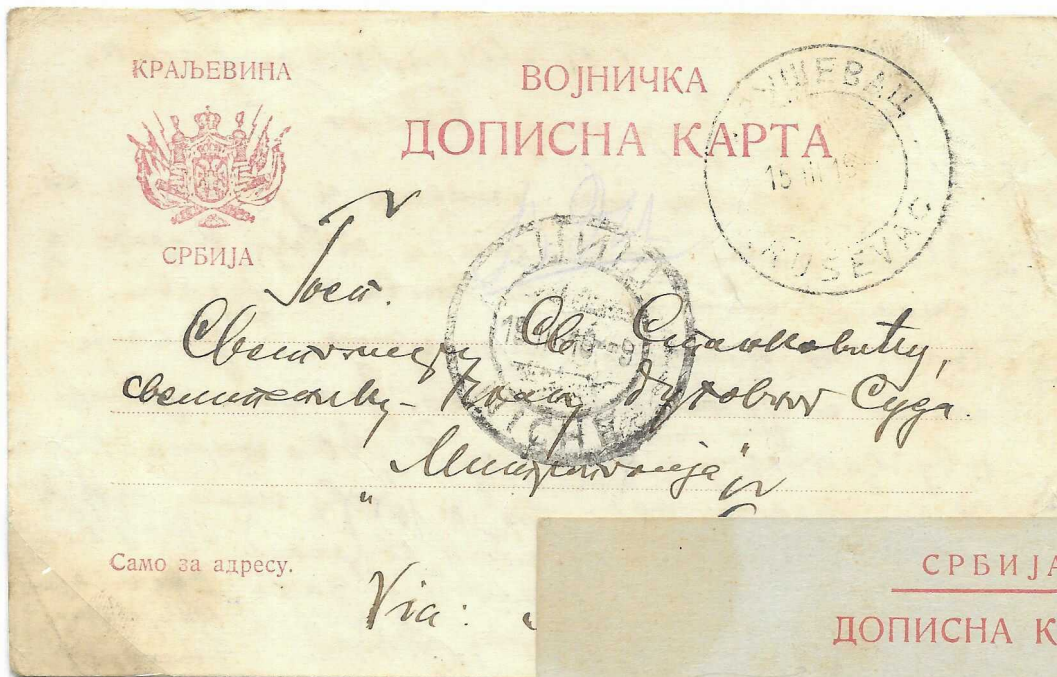 КРАЉЕВИНА
СРБИЈА
ВОЈНИЧКА
ДОПИСНА КАРТА
УШЕВАЦ
15 III 19
RUŠEVAC
Госп.
Светомиру Св. Станковићу,
свештенику - Духовног Суда.
"Митрополија"
Само за адресу.
Via:
СРБИЈА
ДОПИСНА К